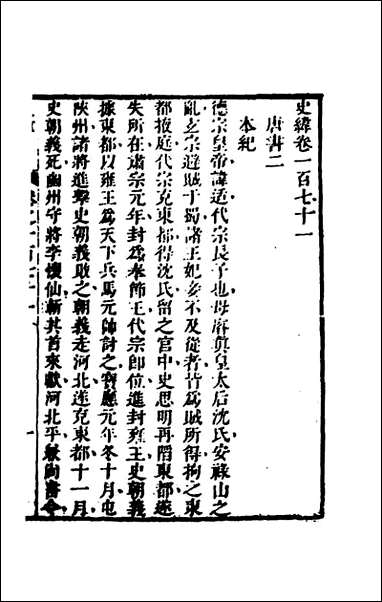 史緯卷一百七十一
唐書二
本紀
德宗皇帝諱适代宗長子也母睿真皇太后沈氏安祿山之
亂玄宗避賊于蜀諸王妃妾不及從者皆為賊所得拘之東
都掖庭代宗克東都得沈氏留之宮中史思明再陷東都遂
失所在肅宗元年封為奉節王代宗卽位進封雍王史朝義
據東都以雍王為天下兵馬元帥討之寶應元年冬十月屯
陝州諸將進擊史朝義敗之朝義走河北遂克東都十一月
史朝義死幽州守將李懷仙斬其首來獻河北平